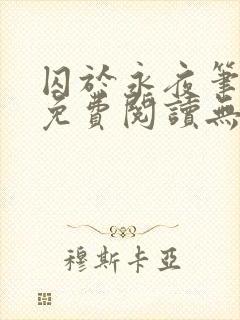 囚於永夜筆
免費閱讀無
穆斯卡亞